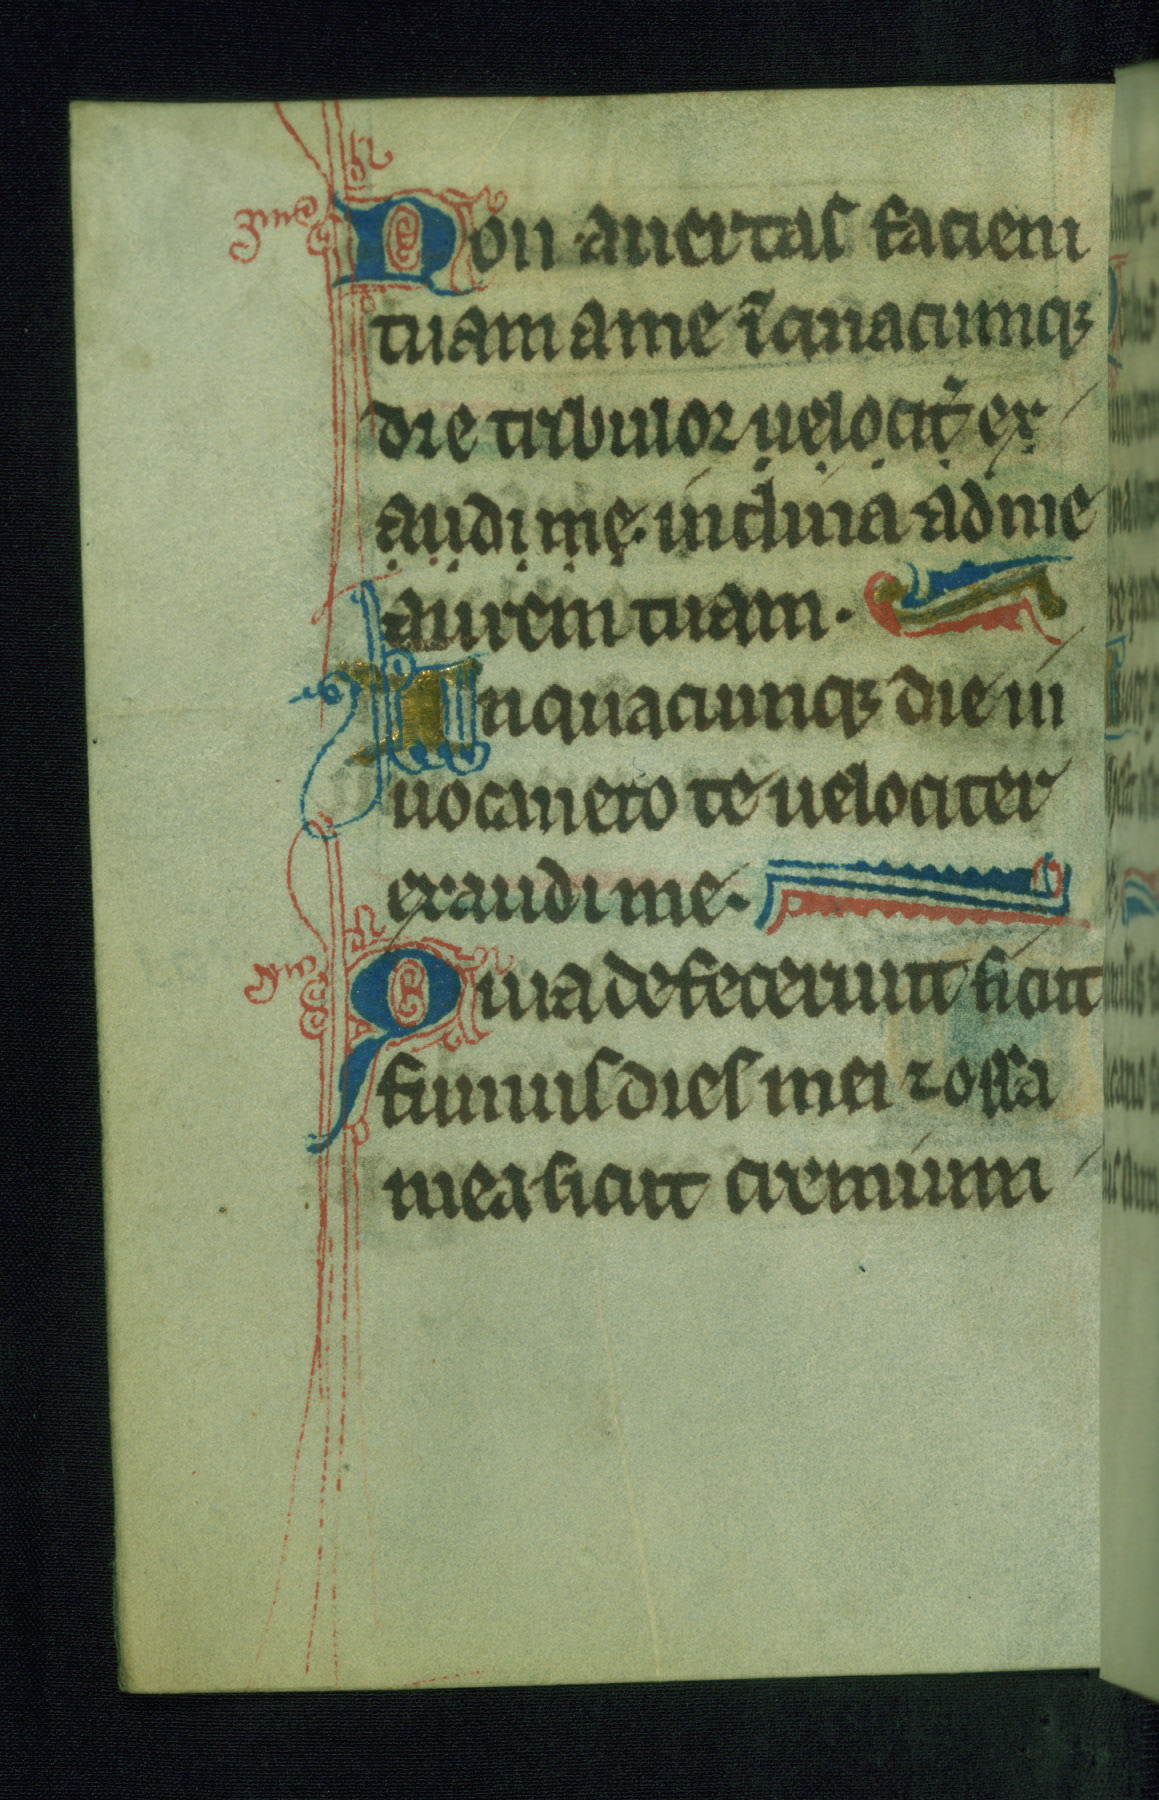 Non auertas faciem
tuam a me ı̃ quacumqꝫ
die tribulor uelocit̃ ex
audi me. inclina ad me
aurem tuam.
In quacumqꝫ die in
uocauero te uelociter
exaudi me.
Quia defecerunt sicut
fumus dies mei ⁊ ossa
mea sicut cremium